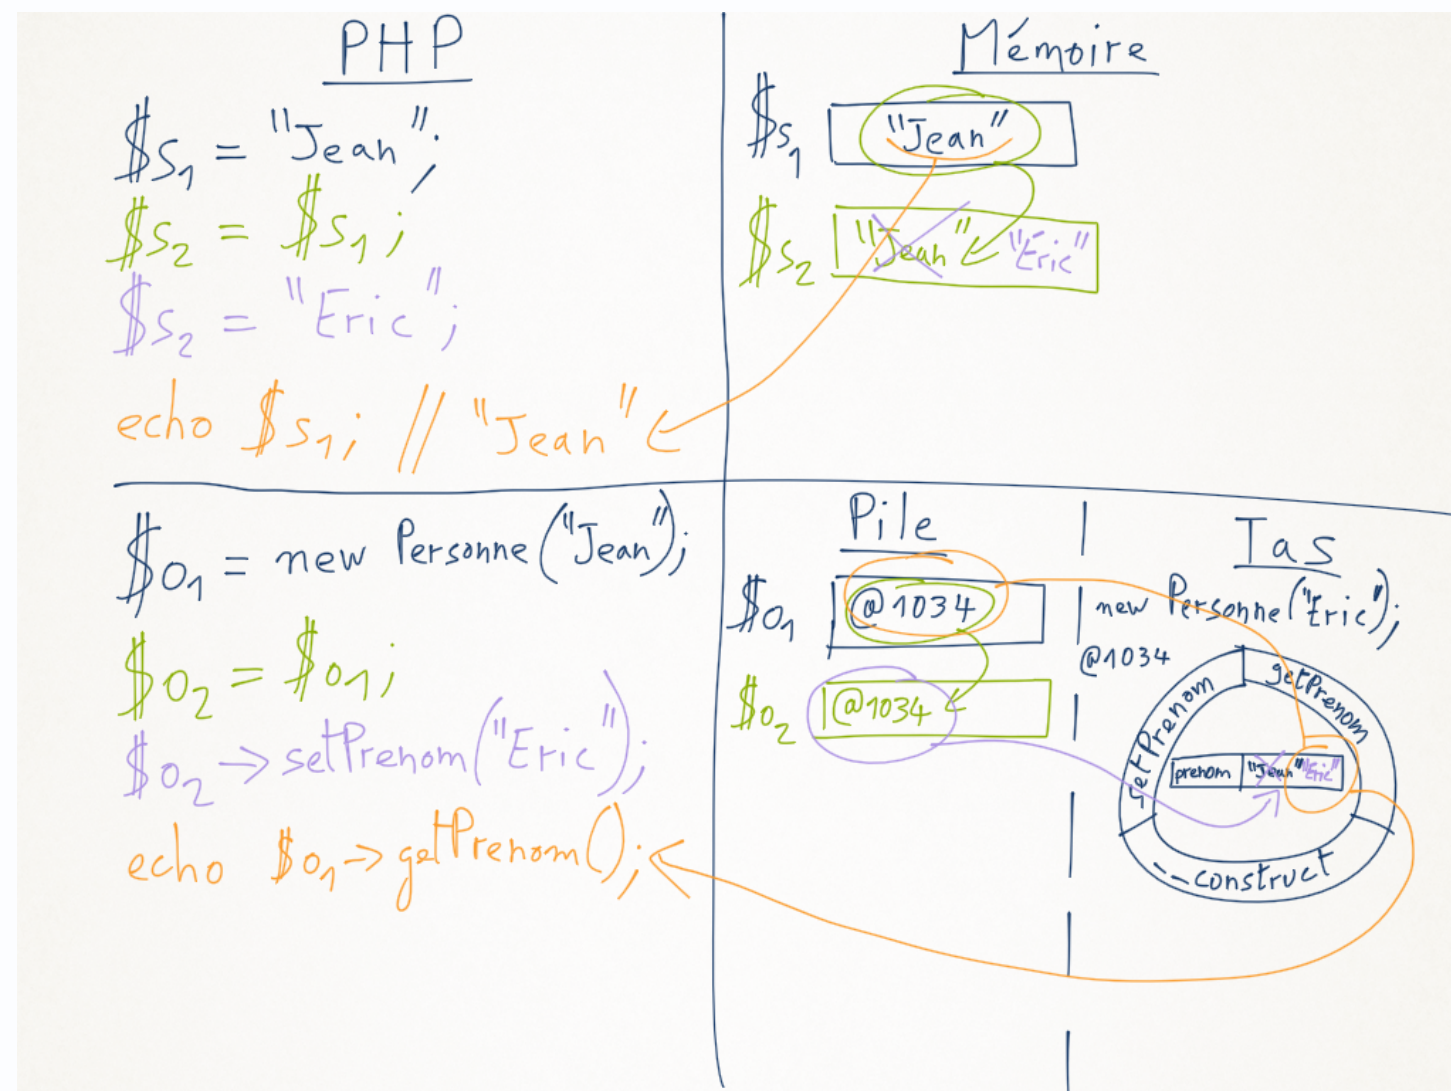 PHP
$s1 = "Jean";
$s2 = $s1;
$s2 = "Eric";
echo $s1; // "Jean"
Mémoire
$s1 "Jean"
$s2 "Jean" "Eric"
$o1 = new Personne("Jean");
$o2 = $o1;
$o2->setPrenom("Eric");
echo $o1->getPrenom();
Pile
$o1 @1034
$o2 @1034
Tas
new Personne("Eric");
@1034
getPrenom
GetPrenom
prenom "Jean" "Eric"
__construct